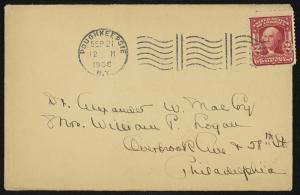 POUGHKEEPSIE
SEP 21
12 M
1906
N.Y.
Dr. Alexander W. MacCoy
Mrs. William P. Logan
Overbrook Ave & 58th St
Philadelphia